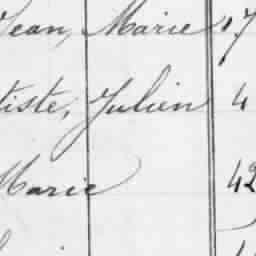 Jean, Marie 17
tiste, Julien 4
Marie 42